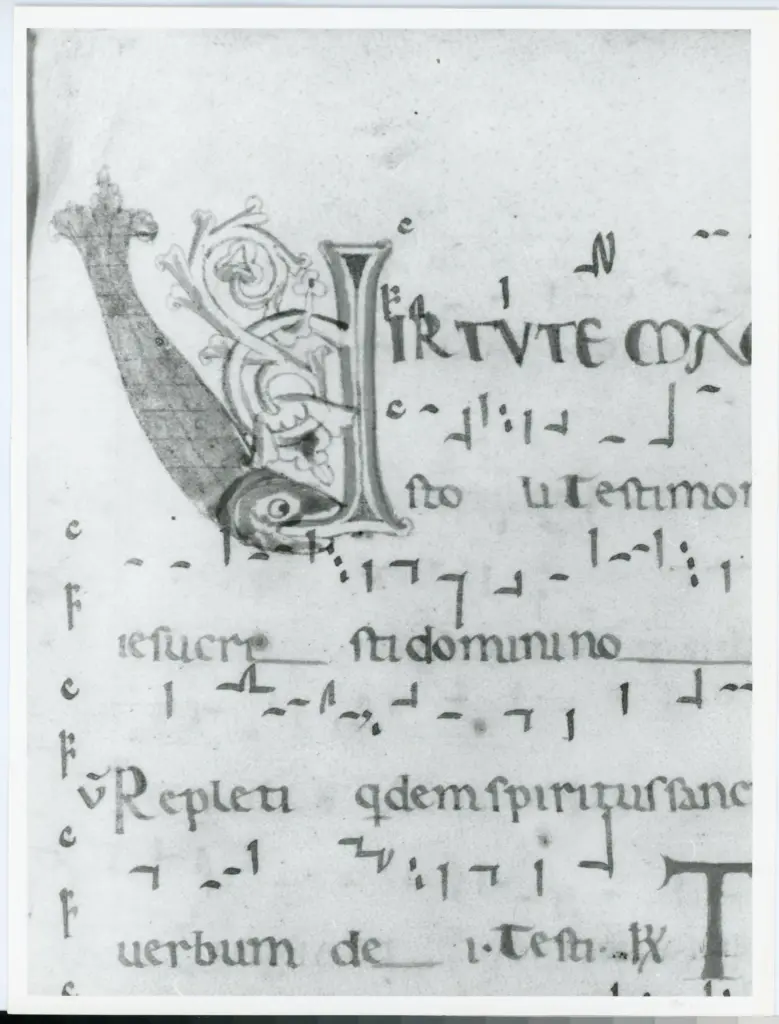 VIRTUTE MAG
sto li testimon
iesucre sti dominino
V Repleti qdem spiritus sanc
uerbum de i. Testi. R T